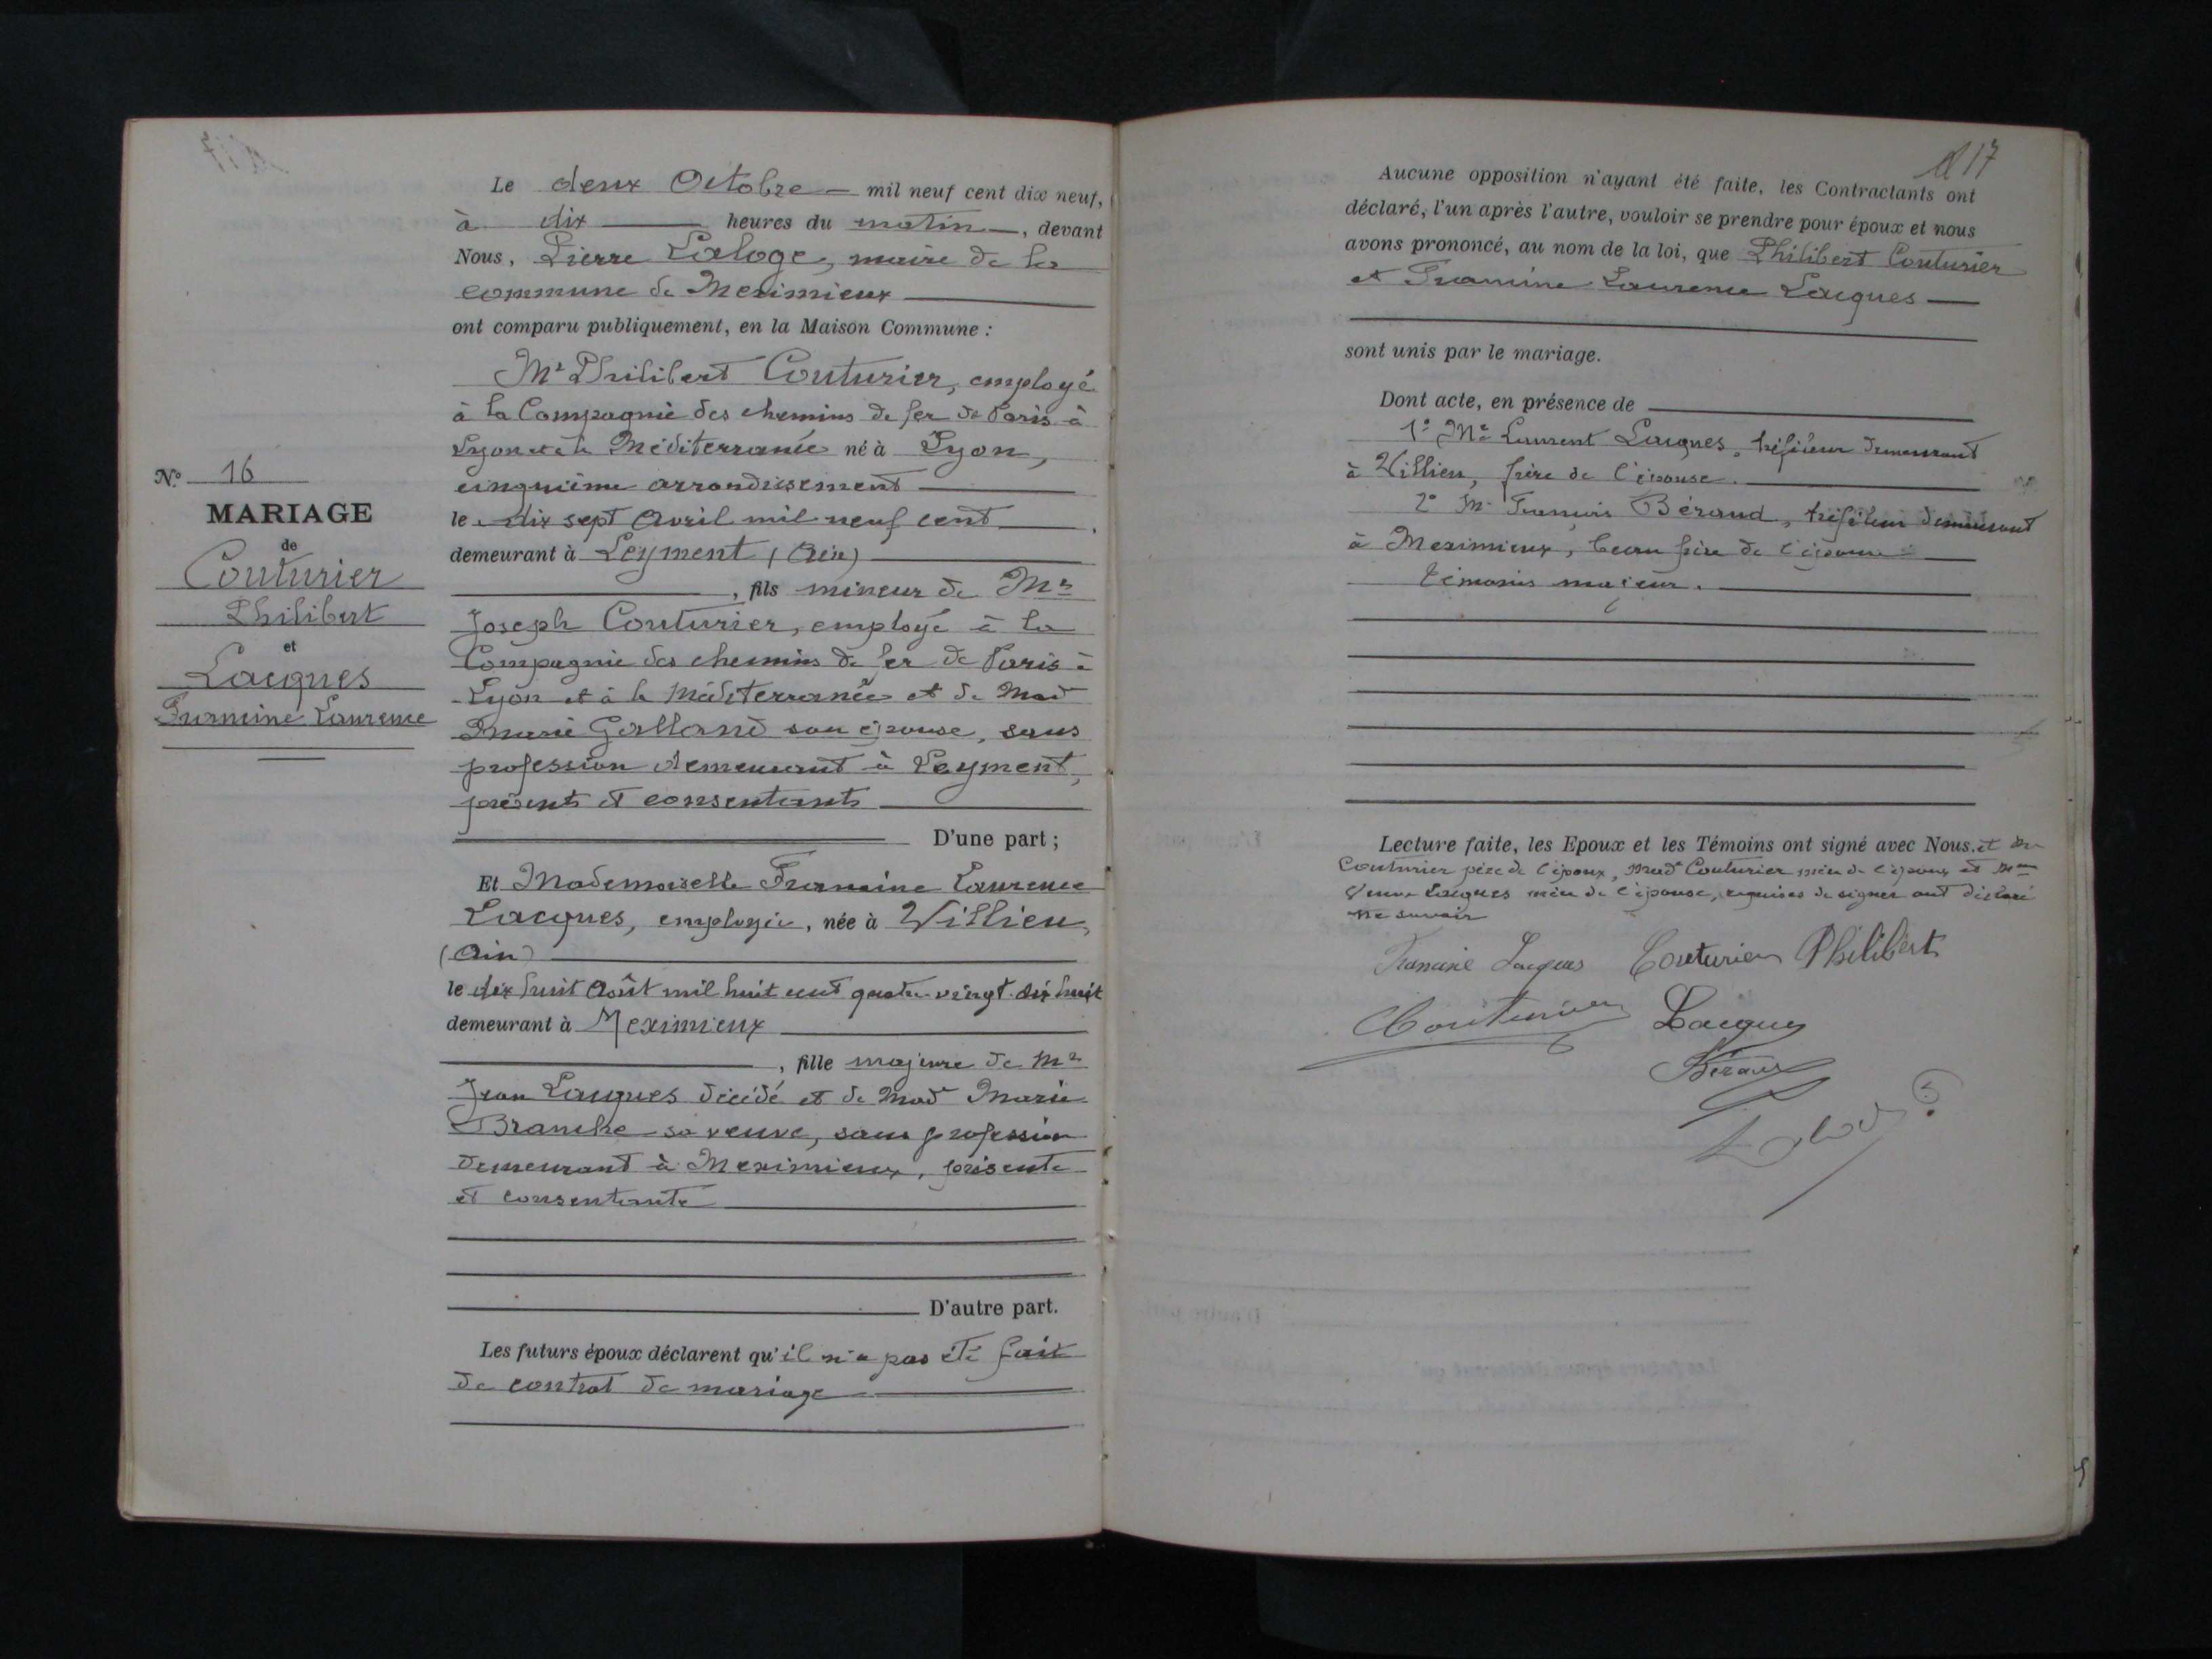 Le deux Octobre — mil neuf cent dix neuf,
à dix heures du matin —, devant
Nous, Pierre Laloge, maire de la
commune de Meximieux
ont comparu publiquement, en la Maison Commune :
Mr Philibert Couturier, employé
à la Compagnie des chemins de fer de Paris à
Lyon et à la Méditerranée né à Lyon,
cinquième arrondissement
le dix sept Avril mil neuf cent
demeurant à Leyment (Ain)
, fils mineur de Mr
Joseph Couturier, employé à la
Compagnie des chemins de fer de Paris à
Lyon et à la Méditerranée et de Mad
Marie Galland son épouse, sans
profession demeurant à Leyment,
présents et consentants
D'une part ;
Et Mademoiselle Francine Laurence
Lacques, employée, née à Villieu,
(Ain)
le dix huit Août mil huit cent quatre vingt dix huit
demeurant à Meximieux
, fille majeure de Mr
Jean Lacques décédé et de Mad Marie
Branche sa veuve, sans profession
demeurant à Meximieux, présente
et consentante
D'autre part.
Les futurs époux déclarent qu'il n'a pas été fait
de contrat de mariage
No 16
MARIAGE
de
Couturier
Philibert
et
Lacques
Francine Laurence
17
Aucune opposition n'ayant été faite, les Contractants ont
déclaré, l'un après l'autre, vouloir se prendre pour époux et nous
avons prononcé, au nom de la loi, que Philibert Couturier
et Francine Laurence Lacques —
sont unis par le mariage.
Dont acte, en présence de
1° Mr Laurent Lacques, tréfileur demeurant
à Villieu, frère de l'épouse.
2° Mr François Béraud, tréfileur demeurant
à Meximieux, beau frère de l'épouse
témoins majeurs.
Lecture faite, les Epoux et les Témoins ont signé avec Nous. et Mr
Couturier père de l'époux, Mad Couturier mère de l'époux et Mme
Veuve Lacques mère de l'épouse, requises de signer ont déclaré
ne savoir
Francine Lacques Couturier Philibert
Couturier Lacques
Béraud